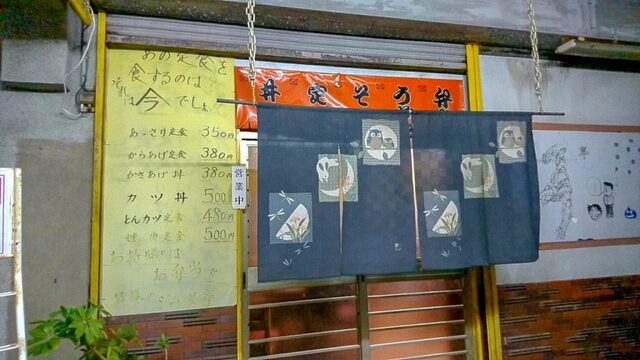 あの定食を
食するのは
それは今でしょ
あっさり定食 350円
からあげ定食 380円
かきあげ丼 380円
カツ丼 500円
とんカツ定食 480円
焼肉定食 500円
お持帰りは
お弁当で
営業中
丼定そう弁